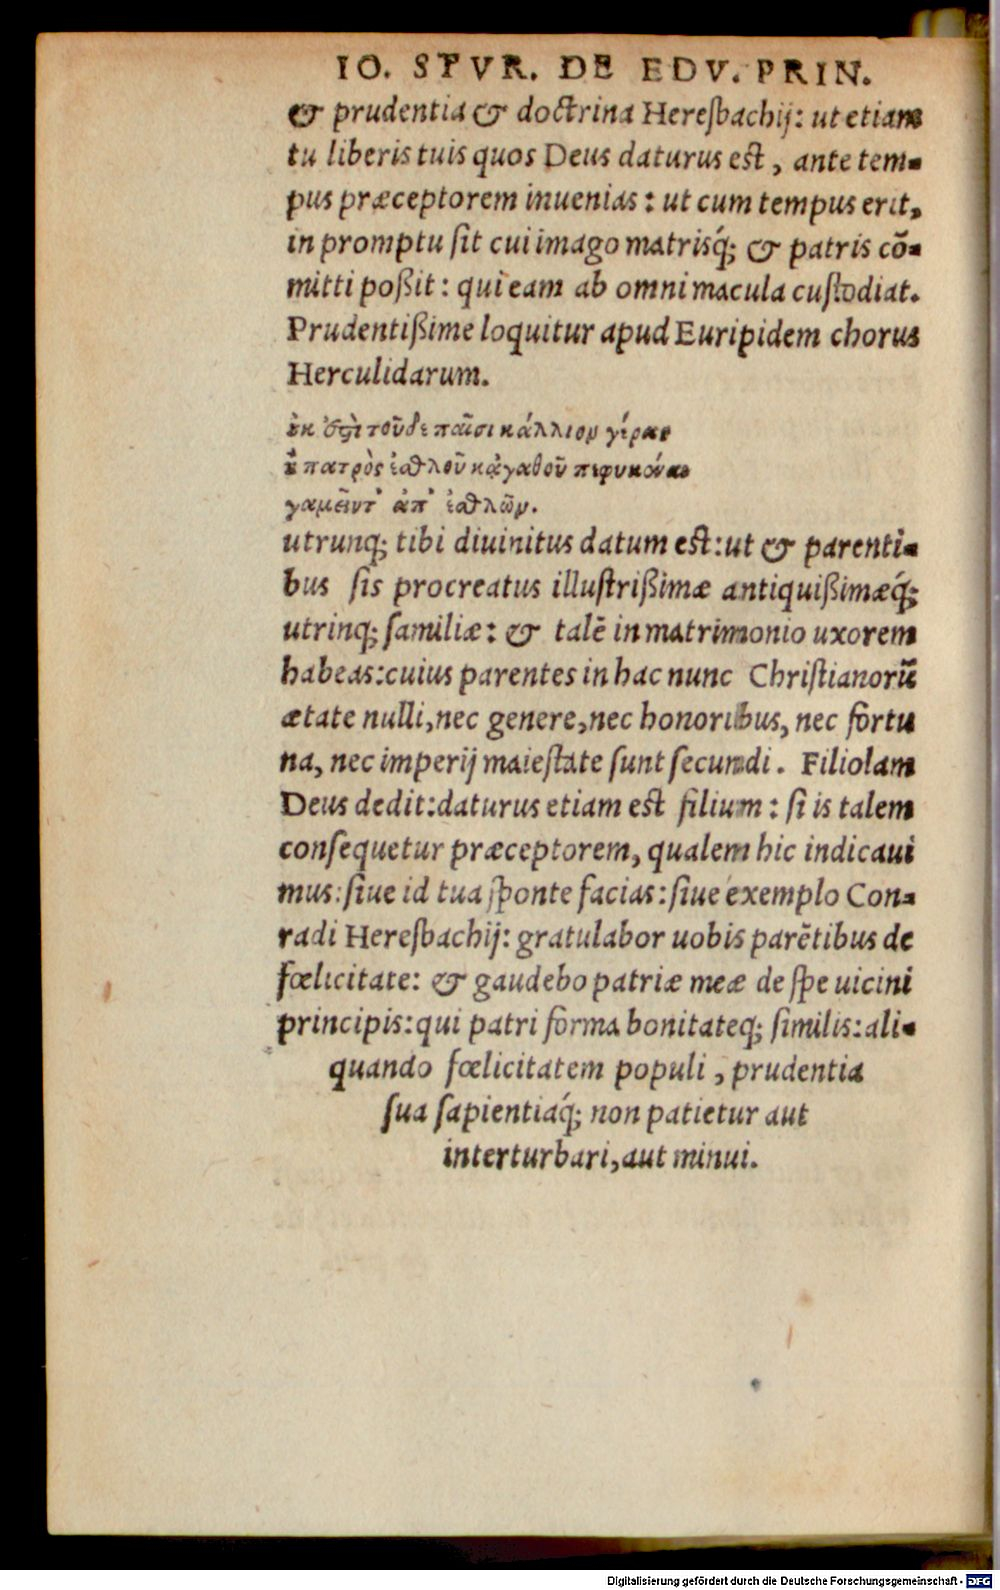 IO. STVR. DE EDV. PRIN.
& prudentia & doctrina Heresbachij: ut etiam
tu liberis tuis quos Deus daturus est, ante tem-
pus præceptorem inuenias: ut cum tempus erit,
in promptu sit cui imago matrisq́; & patris cō-
mitti poßit: qui eam ab omni macula custodiat.
Prudentißime loquitur apud Euripidem chorus
Herculidarum.
ἐκ ἔστι τοῦδε παῖσι κάλλιον γέρας
ἢ πατρὸς ἐσθλοῦ κἀγαθοῦ πεφυκέναι
γαμεῖντ' ἀπ' ἐσθλῶν.
utrunq; tibi diuinitus datum est: ut & parenti-
bus sis procreatus illustrißimæ antiquißimæq́;
utrinq; familiæ: & talē in matrimonio uxorem
habeas: cuius parentes in hac nunc Christianorū
ætate nulli, nec genere, nec honoribus, nec fortu
na, nec imperij maiestate sunt secundi. Filiolam
Deus dedit: daturus etiam est filium: si is talem
consequetur præceptorem, qualem hic indicaui
mus: siue id tua sponte facias: siue exemplo Con-
radi Heresbachij: gratulabor uobis parētibus de
fœlicitate: & gaudebo patriæ meæ de spe uicini
principis: qui patri forma bonitateq; similis: ali-
quando fœlicitatem populi, prudentia
sua sapientiaq́; non patietur aut
interturbari, aut minui.
Digitalisierung gefördert durch die Deutsche Forschungsgemeinschaft - DFG